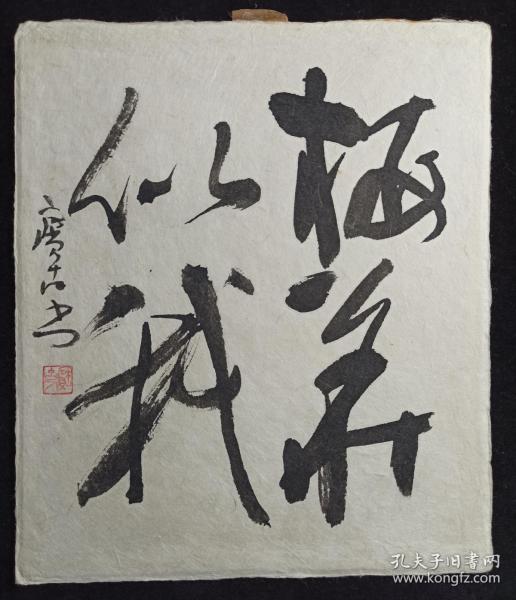 梅華
似我
孔夫子旧书网
https://www.kongfz.com